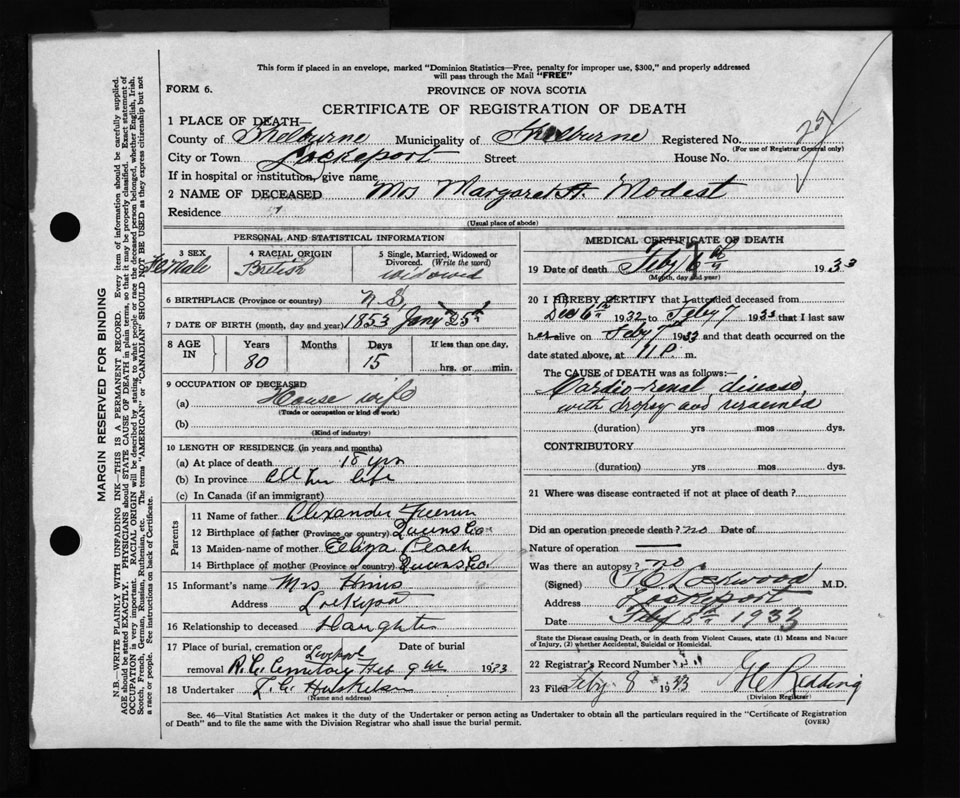 This form if placed in an envelope, marked "Dominion Statistics—Free, penalty for improper use, $300," and properly addressed
will pass through the Mail "FREE"
FORM 6.
PROVINCE OF NOVA SCOTIA
CERTIFICATE OF REGISTRATION OF DEATH
1 PLACE OF DEATH—
County of Shelburne Municipality of Shelburne Registered No.
(For use of Registrar General only)
City or Town Lockeport Street House No.
If in hospital or institution, give name
2 NAME OF DECEASED Mrs Margaret A. Modest
Residence
(Usual place of abode)
PERSONAL AND STATISTICAL INFORMATION
3 SEX Female
4 RACIAL ORIGIN British
5 Single, Married, Widowed or Divorced. (Write the word) widowed
6 BIRTHPLACE (Province or country) N.S.
7 DATE OF BIRTH (month, day and year) 1853 Jany 25th
8 AGE IN Years 80 Months Days 15 If less than one day, hrs. or min.
9 OCCUPATION OF DECEASED
(a) House wife
(Trade or occupation or kind of work)
(b)
(Kind of industry)
10 LENGTH OF RESIDENCE (in years and months)
(a) At place of death 18 yrs
(b) In province all her life
(c) In Canada (if an immigrant)
Parents
11 Name of father Alexander
12 Birthplace of father (Province or country) Queens Co.
13 Maiden-name of mother Eliza Leach
14 Birthplace of mother (Province or country) Queens Co.
15 Informant's name Mrs
Address Lockeport
16 Relationship to deceased Daughter
17 Place of burial, cremation or removal Lockeport R.C. Cemetery Date of burial Feb 9th 1933
18 Undertaker
(Name and address)
MEDICAL CERTIFICATE OF DEATH
19 Date of death Feby 7th 1933
(Month, day and year)
20 I HEREBY CERTIFY that I attended deceased from
Dec 6th 1932 to Feby 7 1933 that I last saw
her alive on Feby 7th 1933 and that death occurred on the
date stated above, at 11 P. m.
The CAUSE of DEATH was as follows:—
Cardio-renal disease
with dropsy and uraemia
(duration) yrs mos dys.
CONTRIBUTORY
(duration) yrs mos dys.
21 Where was disease contracted if not at place of death?
Did an operation precede death? no Date of
Nature of operation —
Was there an autopsy? no
(Signed) Lockwood M.D.
Address Lockeport
Date Feby 1933
State the Disease causing Death, or in death from Violent Causes, state (1) Means and Nature
of Injury, (2) whether Accidental, Suicidal or Homicidal.
22 Registrar's Record Number
23 Filed Feby 8 1933 Redding
(Division Registrar)
Sec. 46—Vital Statistics Act makes it the duty of the Undertaker or person acting as Undertaker to obtain all the particulars required in the "Certificate of Registration
of Death" and to file the same with the Division Registrar who shall issue the burial permit.
(OVER)
MARGIN RESERVED FOR BINDING
N.B.—WRITE PLAINLY WITH UNFADING INK—THIS IS A PERMANENT RECORD. Every item of information should be carefully supplied.
AGE should be stated EXACTLY. PHYSICIANS should STATE CAUSE OF DEATH in plain terms, so that it may be properly classified. Exact statement of
OCCUPATION is very important. RACIAL ORIGIN will be described by stating to what people or race the deceased person belonged, whether English, Irish,
Scotch, French, German, Russian, Ruthenian, etc. The terms "AMERICAN" or "CANADIAN" SHOULD NOT BE USED as they express citizenship but not
a race or people. See instructions on back of Certificate.